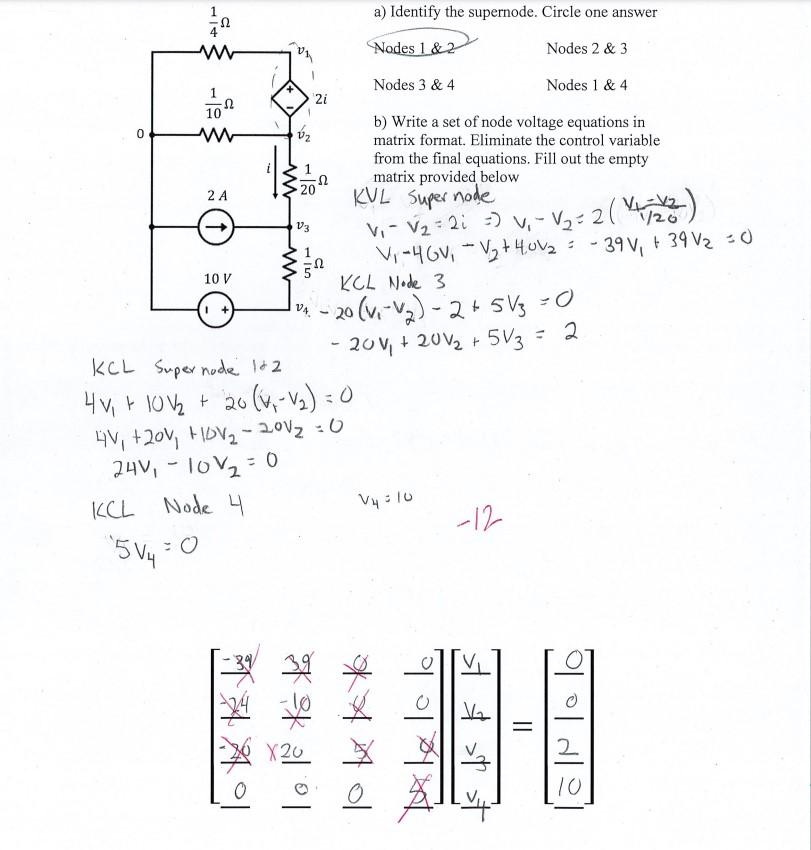 1/4 Ω
v1
2i
1/10 Ω
0
v2
i
1/20 Ω
2 A
v3
1/5 Ω
10 V
v4
a) Identify the supernode. Circle one answer
Nodes 1 & 2 Nodes 2 & 3
Nodes 3 & 4 Nodes 1 & 4
b) Write a set of node voltage equations in
matrix format. Eliminate the control variable
from the final equations. Fill out the empty
matrix provided below
KVL Supernode
V1 - V2 = 2i => V1 - V2 = 2(V1 - V2 / 1/20)
V1 - 40V1 - V2 + 40V2 = -39V1 + 39V2 = 0
KCL Node 3
-20(V1 - V2) - 2 + 5V3 = 0
-20V1 + 20V2 + 5V3 = 2
KCL Supernode 1&2
4V1 + 10V2 + 20(V1 - V2) = 0
4V1 + 20V1 + 10V2 - 20V2 = 0
24V1 - 10V2 = 0
KCL Node 4
V4 = 10
-12
5V4 = 0
-39 39 0 0 V1 0
-24 -10 0 0 V2 = 0
-20 20 5 0 V3 2
0 0 0 5 V4 10